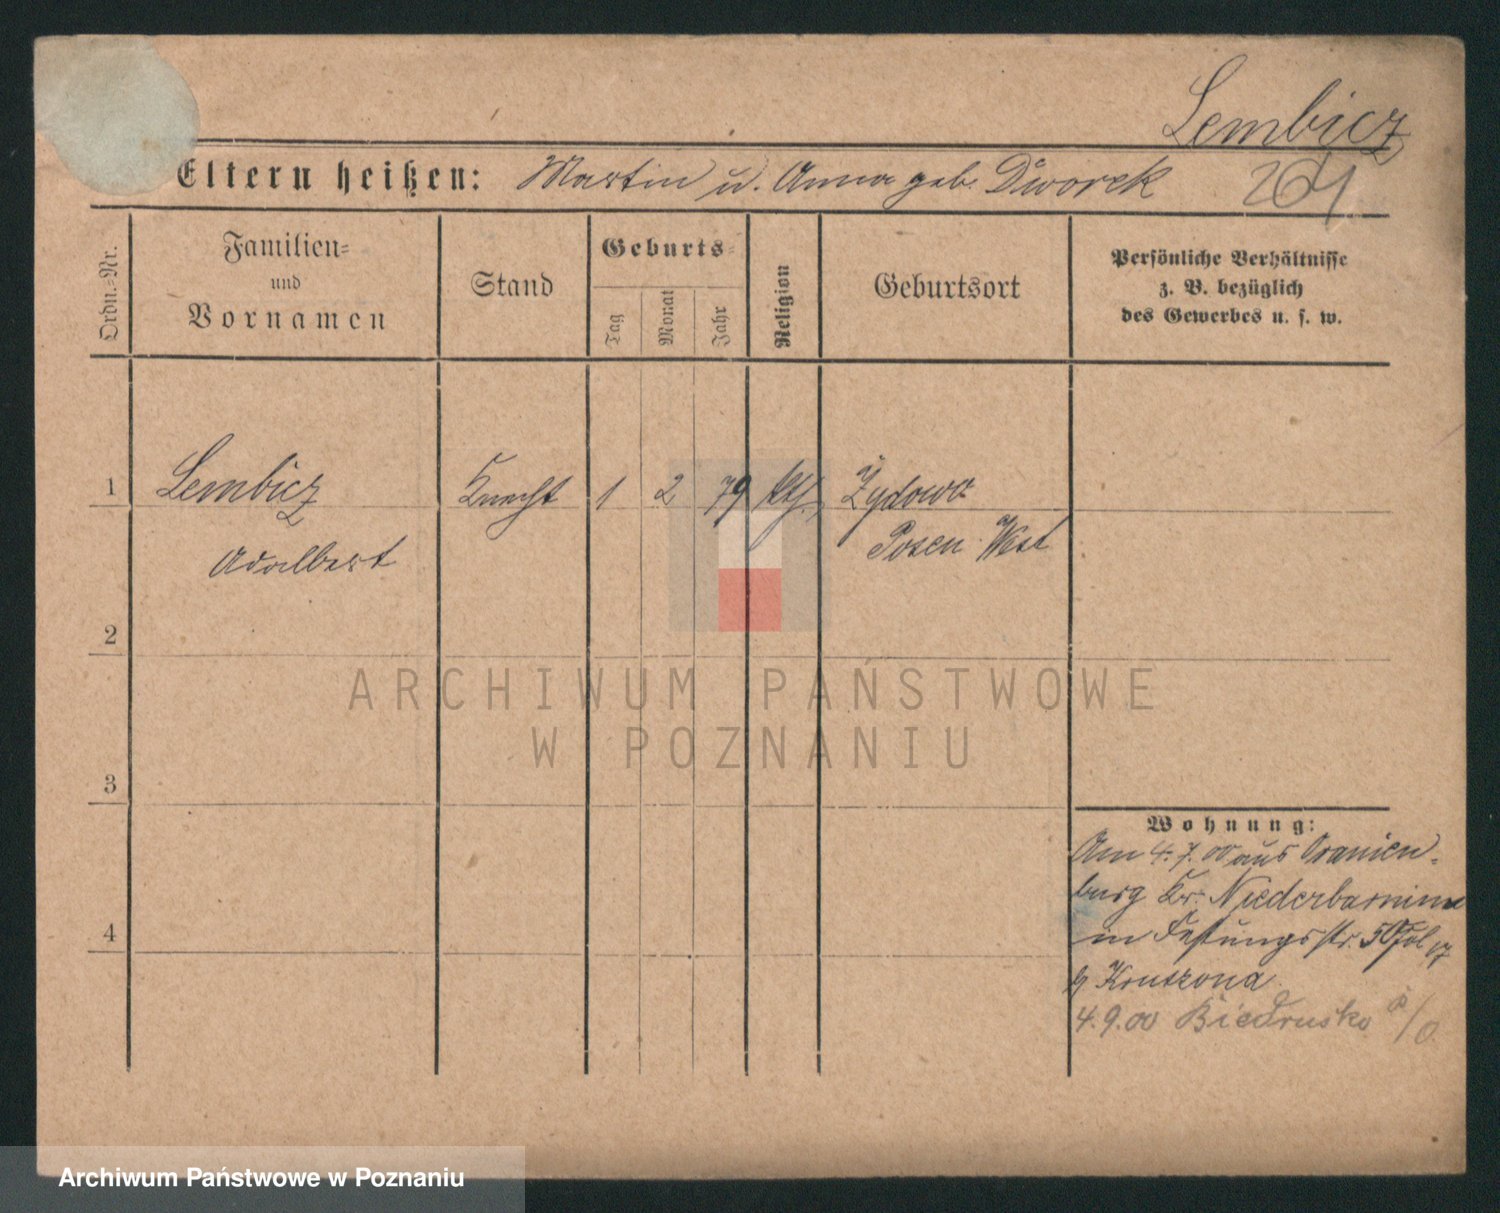 Lembicz
Eltern heißen: Martin u. Anna geb. Dworek 264
Ordn.=Nr.
Familien=
und
Vornamen
Stand
Geburts=
Tag
Monat
Jahr
Religion
Geburtsort
Persönliche Verhältnisse
z. B. bezüglich
des Gewerbes u. s. w.
1 Lembicz Knecht 1 2 79 kth. Żydowo
Adalbert Posen West
2
3
4
Wohnung:
Am 4.7.00 aus Oranien-
burg Kr. Niederbarnim
in Festungsstr. 50
Kruszona
4.9.00 Biedrusko
ARCHIWUM PAŃSTWOWE
W POZNANIU
Archiwum Państwowe w Poznaniu